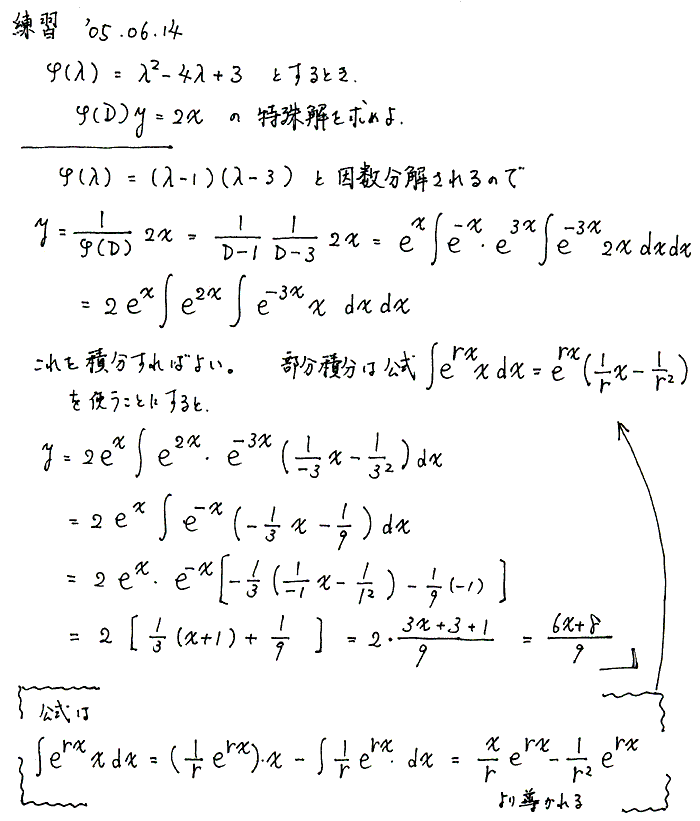 練習 '05.06.14
φ(λ) = λ²-4λ+3 とするとき.
φ(D)y = 2x の 特殊解を求めよ.
φ(λ) = (λ-1)(λ-3) と因数分解されるので
y = 1/φ(D) 2x = 1/(D-1) 1/(D-3) 2x = e^x ∫e^{-x}・e^{3x}∫e^{-3x} 2x dxdx
= 2e^x ∫e^{2x} ∫e^{-3x} x dx dx
これを積分すればよい。 部分積分は公式 ∫e^{rx} x dx = e^{rx}(1/r x - 1/r²)
を使うことにすると.
y = 2e^x ∫ e^{2x}・e^{-3x} (1/-3 x - 1/3²) dx
= 2 e^x ∫ e^{-x} (-1/3 x - 1/9) dx
= 2 e^x・e^{-x} [-1/3 (1/-1 x - 1/1²) - 1/9 (-1)]
= 2 [1/3 (x+1) + 1/9] = 2・(3x+3+1)/9 = (6x+8)/9
公式は
∫e^{rx} x dx = (1/r e^{rx})・x - ∫1/r e^{rx}・dx = x/r e^{rx} - 1/r² e^{rx}
より導かれる